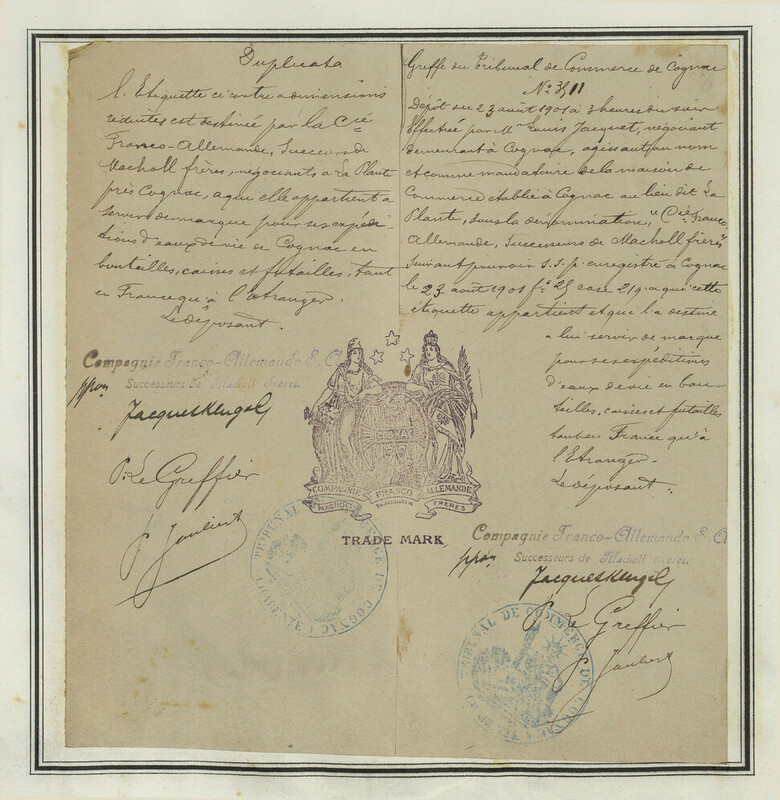 Duplicata
L'Etiquette ci contre a dimensions
réduites est destinée par la Cie
Franco-Allemande, Successeurs de
Macholl frères, négociants à La Plante
près Cognac, a qui elle appartient a
servir de marque pour ses expédi-
tions d'eaux de vie de Cognac en
bouteilles, caisses et futailles, tant
en France qu'à l'Etranger.
Le déposant.
Compagnie Franco-Allemande S. C.
Successeurs de Macholl Frères.
ppon
Jacques Kengel
P. Le Greffier
P. Joubert
Greffe du Tribunal de Commerce de Cognac
No 3511
Dépôt du 23 août 1901 à 3 heures du soir
Effectuée par Mr Louis Jacquet, négociant
demeurant à Cognac, agissant au nom
et comme mandataire de la maison de
Commerce établie à Cognac au lieu dit La
Plante, sous la dénomination, "Cie Franco
Allemande, Successeurs de Macholl frères"
suivant pouvoir S. S. p. enregistré à Cognac
le 23 août 1901 fo 25 case 219. a qui cette
étiquette appartient et qui l'a destine
a lui servir de marque
pour ses expéditions
d'eaux de vie en bou-
teilles, caisses et futailles
tant en France qu'à
l'Etranger.
Le déposant.
COMPAGNIE FRANCO ALLEMANDE
MACHOLL FRÈRES
TRADE MARK
TRIBUNAL DE COMMERCE DE COGNAC
CHARENTE
Compagnie Franco-Allemande S. C
Successeurs de Macholl Frères.
ppon
Jacques Kengel
P. Le Greffier
P. Joubert
TRIBUNAL DE COMMERCE DE COGNAC
CHARENTE